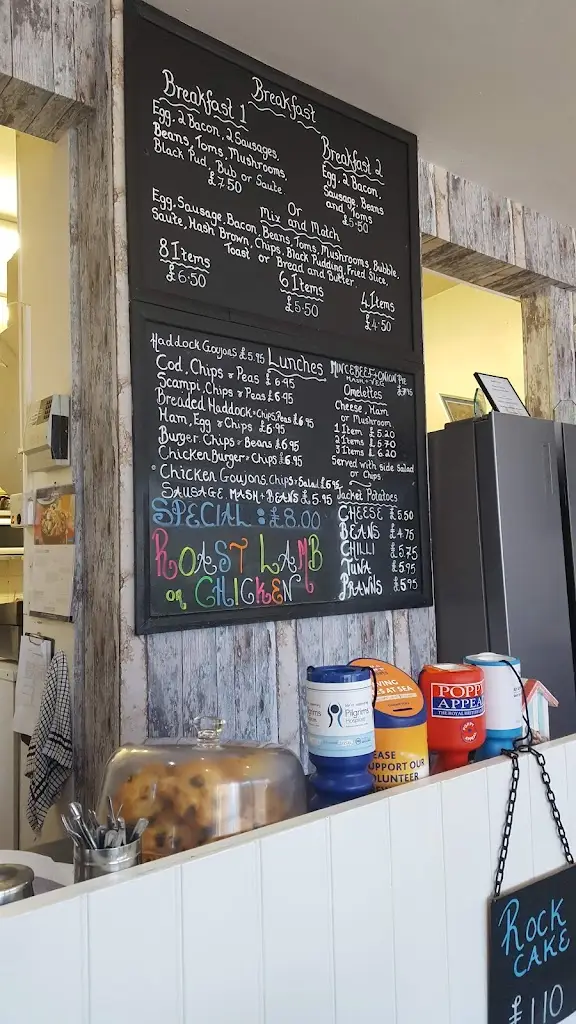 Breakfast
Breakfast 1
Egg, 2 Bacon, 2 Sausages,
Beans, Toms, Mushrooms,
Black Pud, Bub or Saute
£7.50
Breakfast 2
Egg, 2 Bacon,
Sausage, Beans
and Toms
£5.50
Or
Mix and Match
Egg, Sausage, Bacon, Beans, Toms, Mushrooms, Bubble,
Saute, Hash Brown, Chips, Black Pudding, Fried Slice,
Toast or Bread and Butter
8 Items
£6.50
6 Items
£5.50
4 Items
£4.50
Haddock Goujons £5.95
Lunches
Cod, Chips & Peas £6.95
Scampi, Chips & Peas £6.95
Breaded Haddock & Chips, Peas £6.95
Ham, Egg & Chips £6.95
Burger, Chips & Beans £6.95
Chicken Burger & Chips £6.95
Chicken Goujons, Chips & Salad £6.95
SAUSAGE MASH & BEANS £5.95
SPECIAL : £8.00
ROAST LAMB
OR CHICKEN
MINCE BEEF & ONION PIE
MASH & VEG
Omelettes
Cheese, Ham
or Mushroom
1 Item £5.20
2 Items £5.70
3 Items £6.20
Served with side Salad
or Chips
Jacket Potatoes
CHEESE £5.50
BEANS £4.75
CHILLI £5.75
TUNA £5.95
PRAWNS £5.95
Pilgrims
Hospices
AT SEA
SUPPORT OUR
VOLUNTEER
POPPY
APPEAL
ROCK
CAKE
£1.10